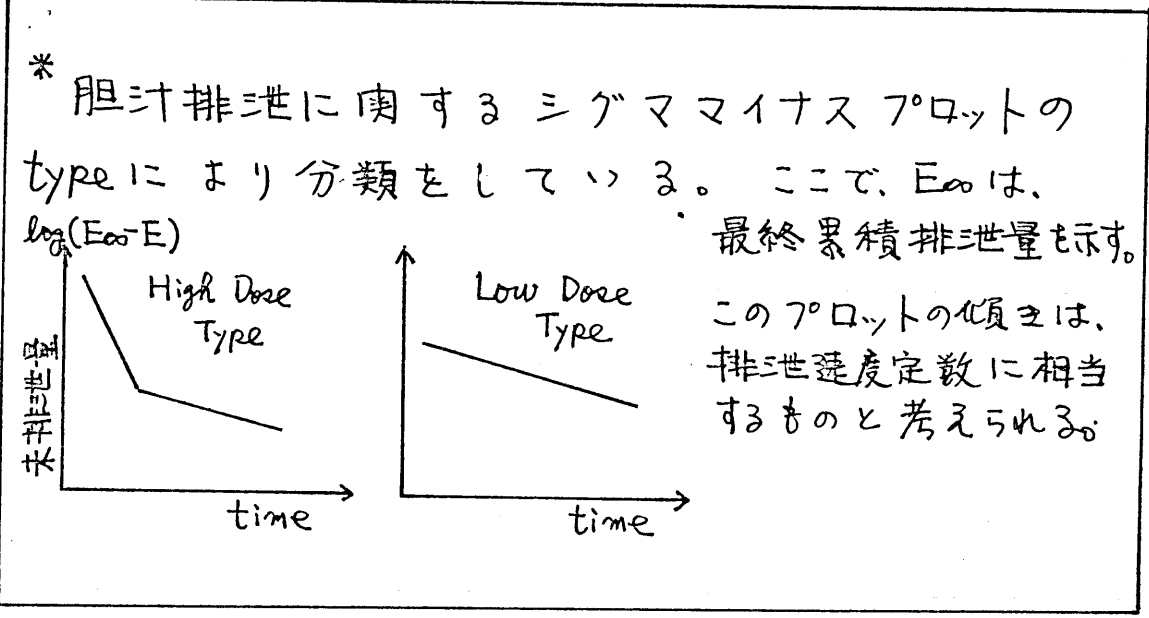 * 胆汁排泄に関するシグママイナスプロットの
typeにより分類をしている。ここで、E∞は、
最終累積排泄量を示す。
このプロットの傾きは、
排泄速度定数に相当
するものと考えられる。
log(E∞-E)
未排泄量
High Dose
Type
time
Low Dose
Type
time